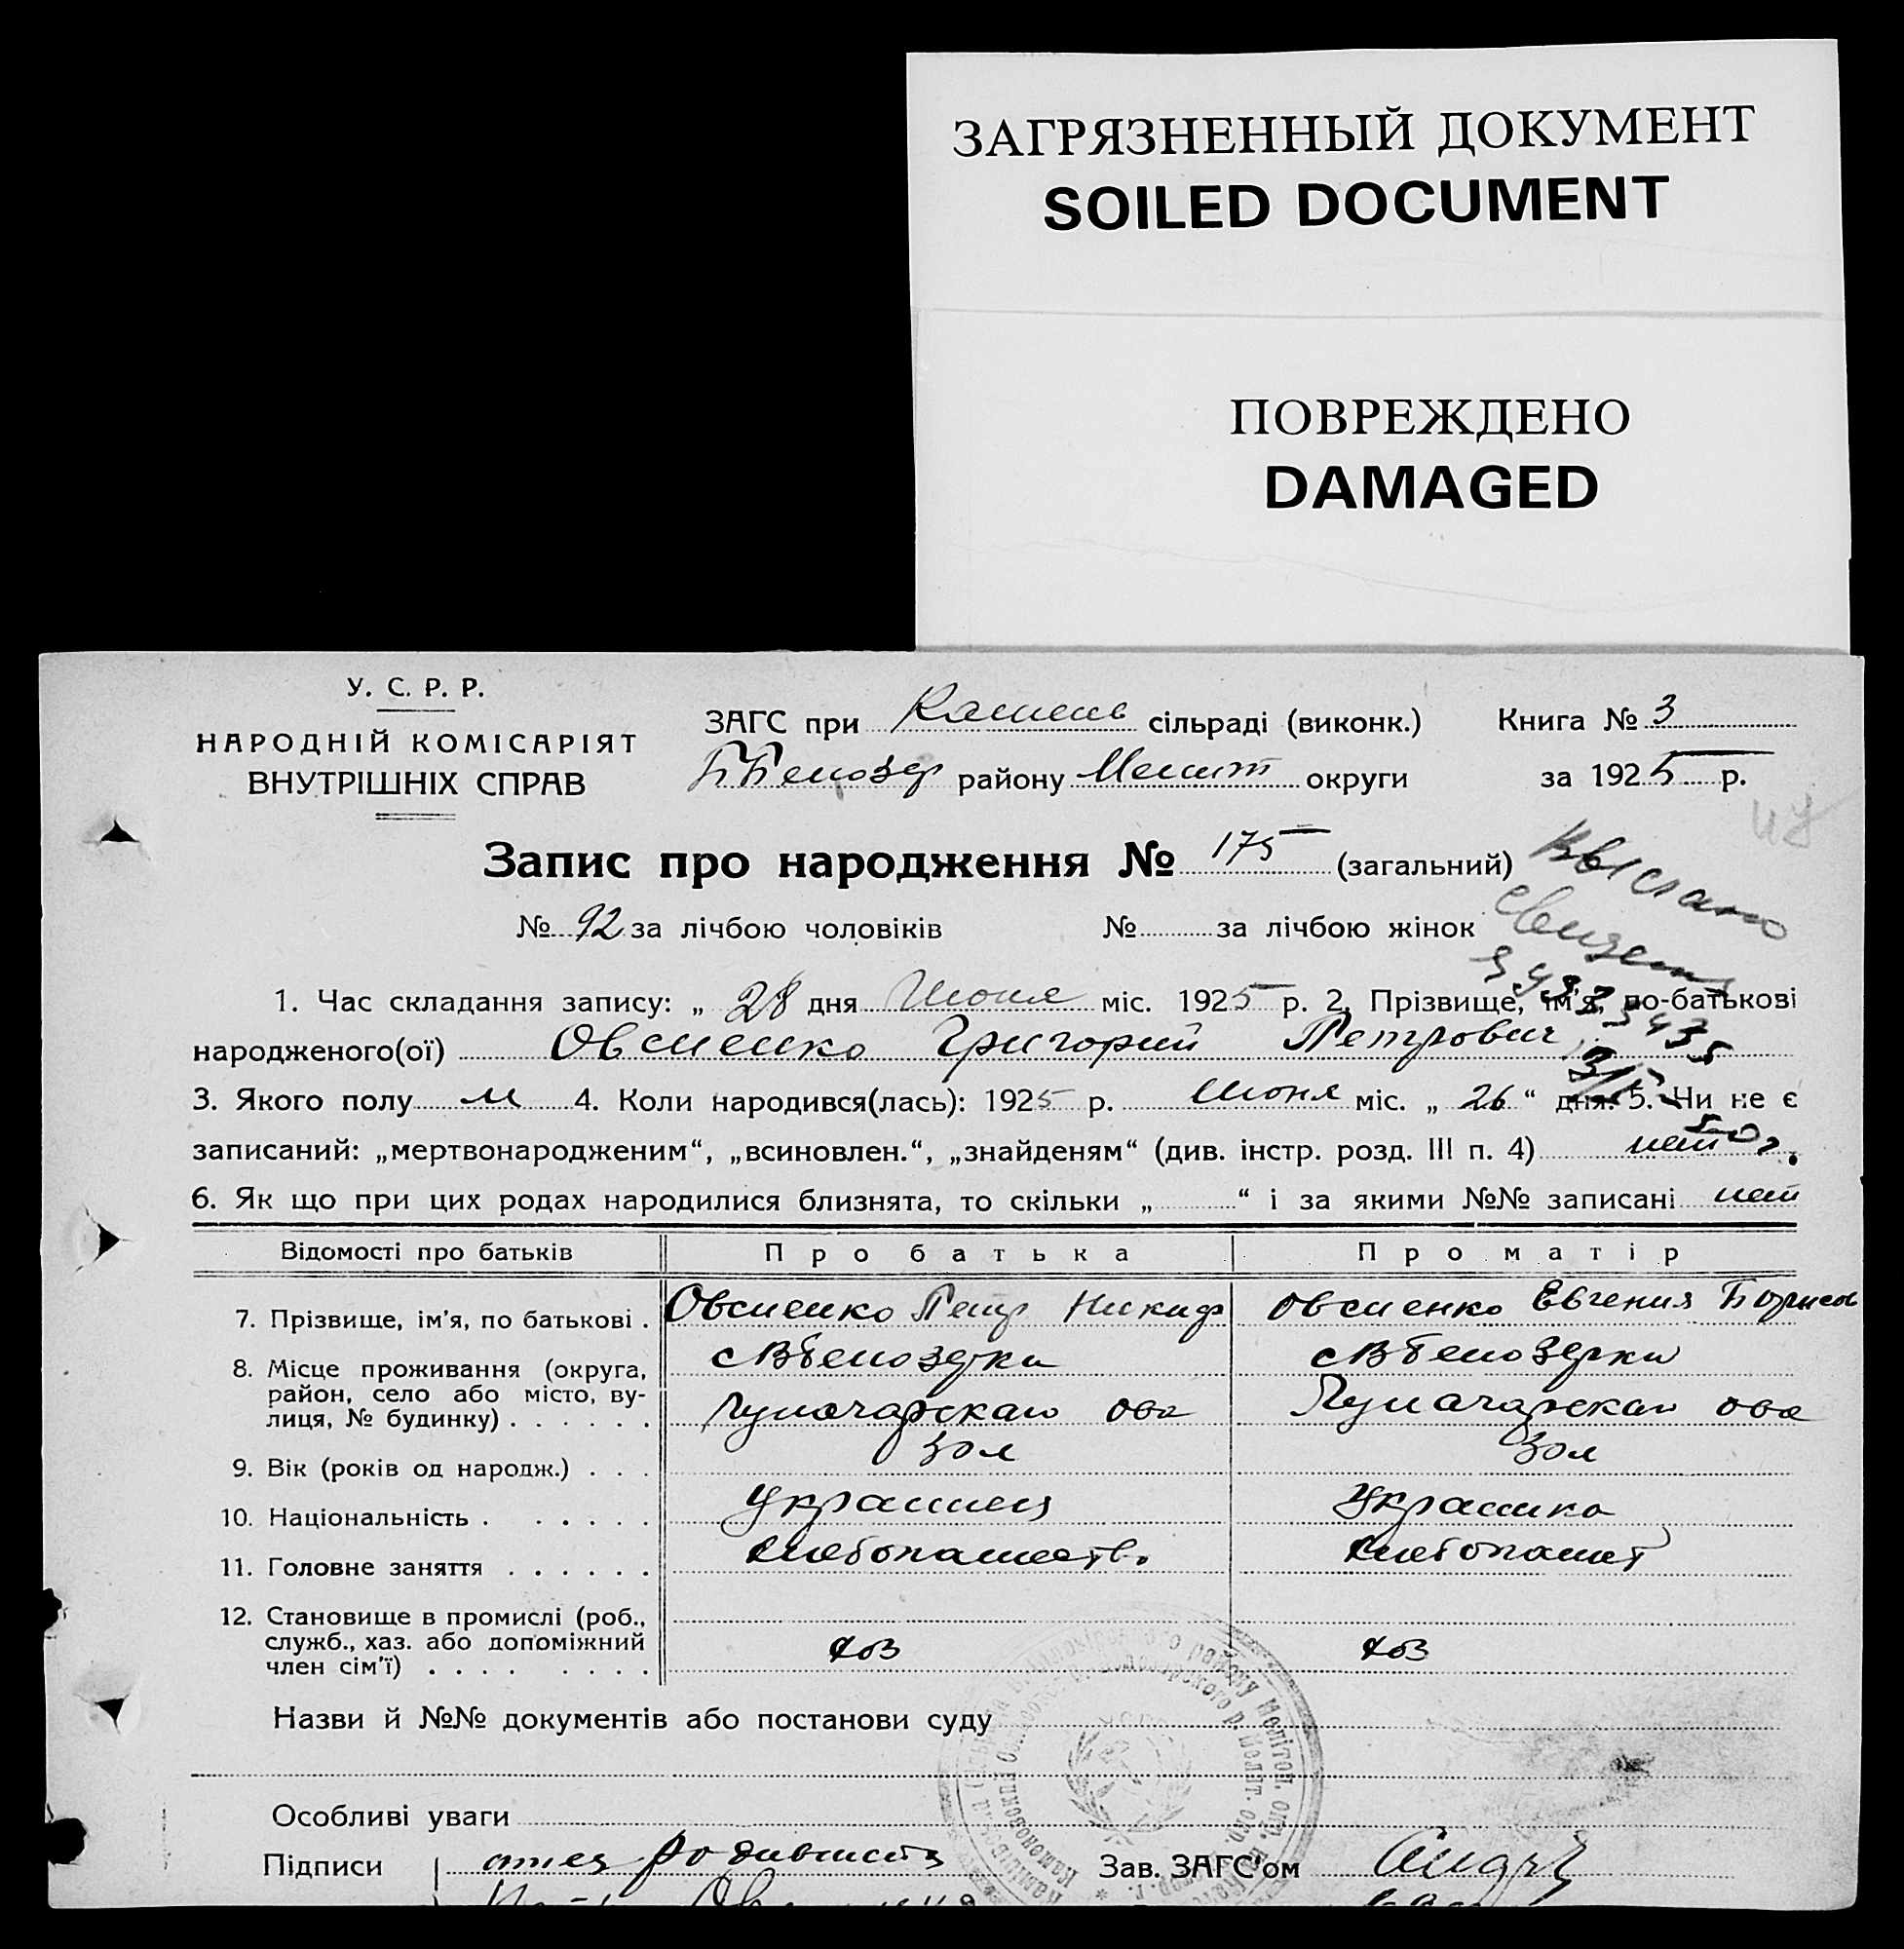 ЗАГРЯЗНЕННЫЙ ДОКУМЕНТ
SOILED DOCUMENT
ПОВРЕЖДЕНО
DAMAGED
У. С. Р. Р.
НАРОДНІЙ КОМІСАРІЯТ
ВНУТРІШНІХ СПРАВ
ЗАГС при Камень сільраді (виконк.)
Книга № 3
району Мелит округи
за 1925 р.
Запис про народження № 175 (загальний)
№ 92 за лічбою чоловіків № за лічбою жінок
1. Час складання запису: „ 28 дня Июня міс. 1925 р. 2. Прізвище, ім'я, по-батькові
народженого(ої) Овсиенко Григорий Петрович
3. Якого полу м 4. Коли народився(лась): 1925 р. Июня міс. „ 26 “ дня. 5. Чи не є
записаний: „мертвонародженим“, „всиновлен.“, „знайденям“ (див. інстр. розд. III п. 4) нет
6. Як що при цих родах народилися близнята, то скільки „ “ і за якими №№ записані нет
Відомості про батьків Про батька Про матір
7. Прізвище, ім'я, по батькові . Овсиенко Петр Никиф овсиенко Евгения Борисов
8. Місце проживання (округа,
район, село або місто, ву-
лиця, № будинку) . . . . . .
9. Вік (років од народж.) . . . 30л 30л
10. Національність . . . . . . украинец украинка
11. Головне заняття . . . . . . хлебопашеств. хлебопашет
12. Становище в промислі (роб.,
служб., хаз. або допоміжний
член сім'ї) . . . . . . . . хоз хоз
Назви й №№ документів або постанови суду
Особливі уваги
Підписи отец Зав. ЗАГС'ом